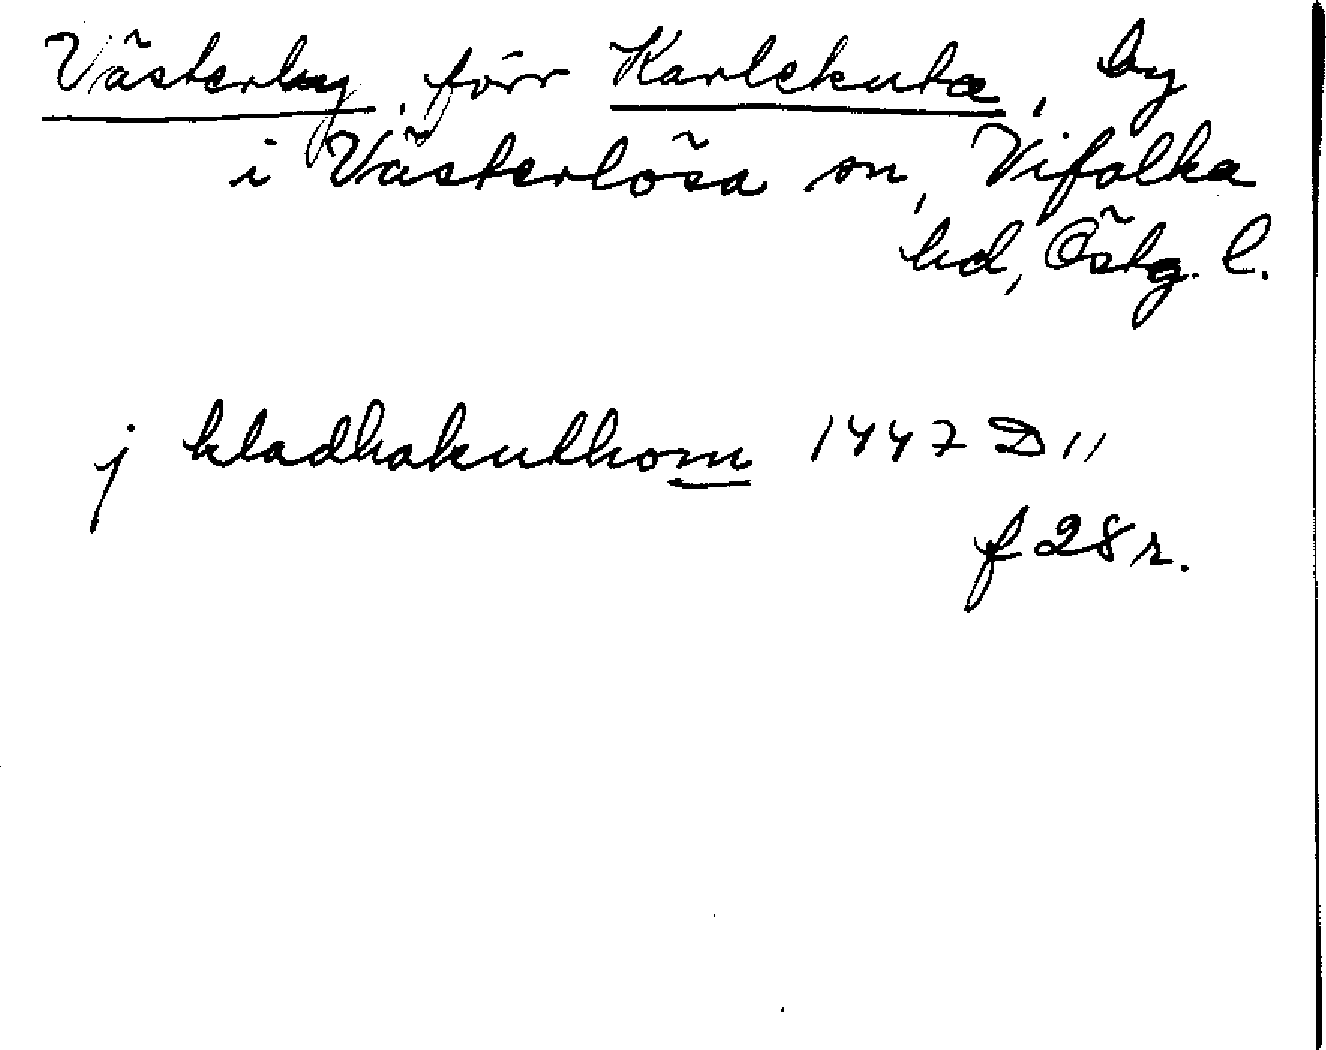 Västerby, förr Karlekuta, by
i Västerlösa sn, Vifolka
hd, Östg. l.
j kladhakuthom 1447 D 11
f 28 r.